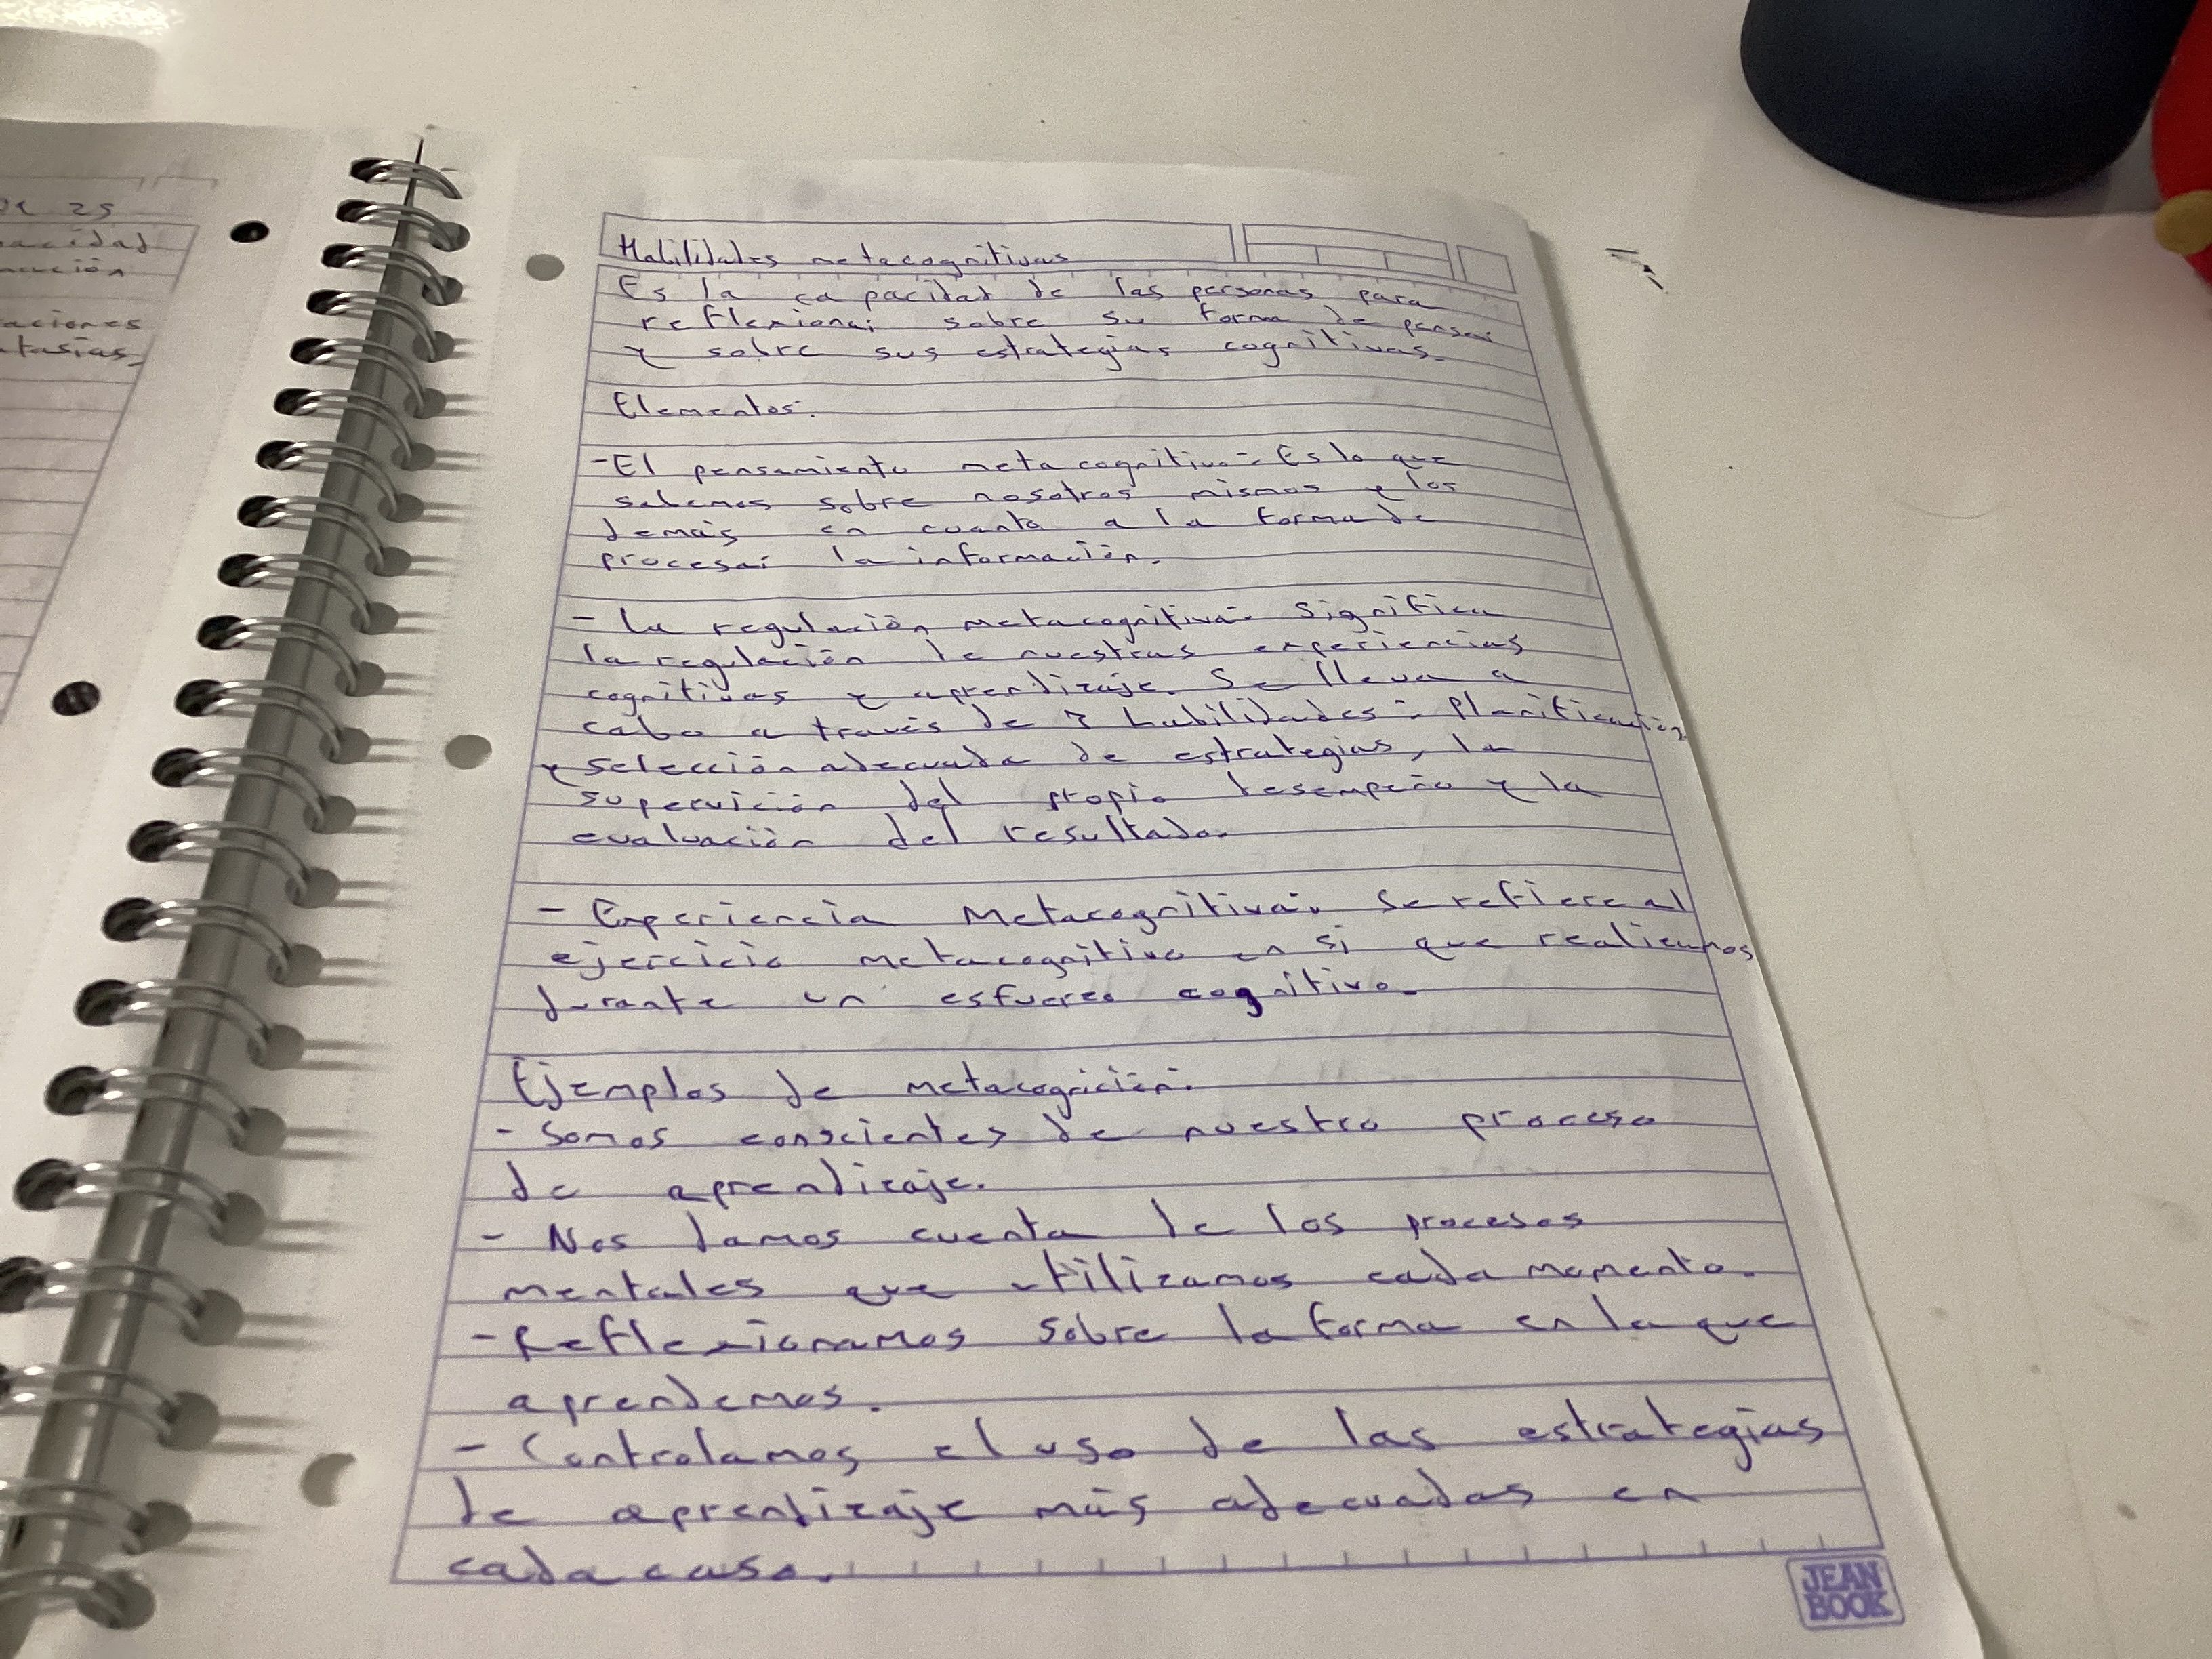 DE 25
acidad
ación
aciones
tasias,
Habilidades metacognitivas
Es la capacidad de las personas para
reflexionar sobre su forma de pensar
y sobre sus estrategias cognitivas.
Elementos:
-El pensamiento metacognitivo: Es lo que
sabemos sobre nosotros mismos y los
demás en cuanto a la forma de
procesar la información.
- La regulación metacognitiva: Significa
la regulación de nuestras experiencias
cognitivas y aprendizaje. Se lleva a
cabo a través de 3 habilidades: Planificación
y selección adecuada de estrategias, la
supervición del propio desempeño y la
evaluación del resultado.
- Experiencia Metacognitiva: Se refiere al
ejercicio metacognitivo en si que realizamos
durante un esfuerzo cognitivo.
Ejemplos de metacognición:
- Somos conscientes de nuestro proceso
de aprendizaje.
- Nos damos cuenta de los procesos
mentales que utilizamos cada momento.
- Reflexionamos sobre la forma en la que
aprendemos.
- Controlamos el uso de las estrategias
de aprendizaje más adecuadas en
cada caso.
JEAN
BOOK